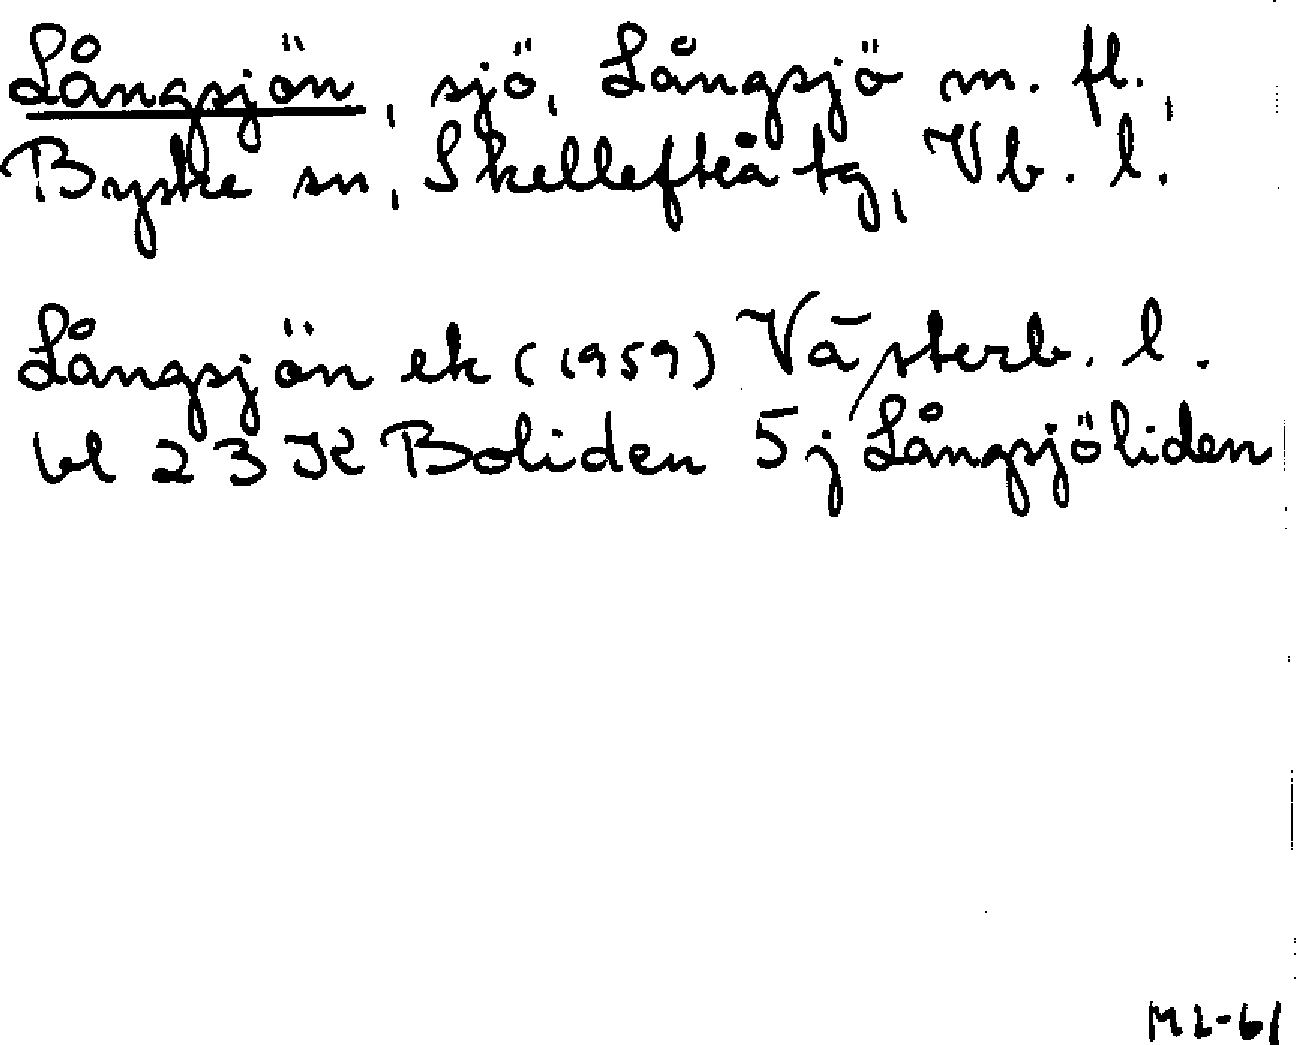 Långsjön, sjö, Långsjö m. fl.,
Byske sn, Skellefteå tg, Vb. l.
Långsjön ek (1959) Västerb. l.
bl 23 K Boliden 5 j Långsjöliden
ML-61